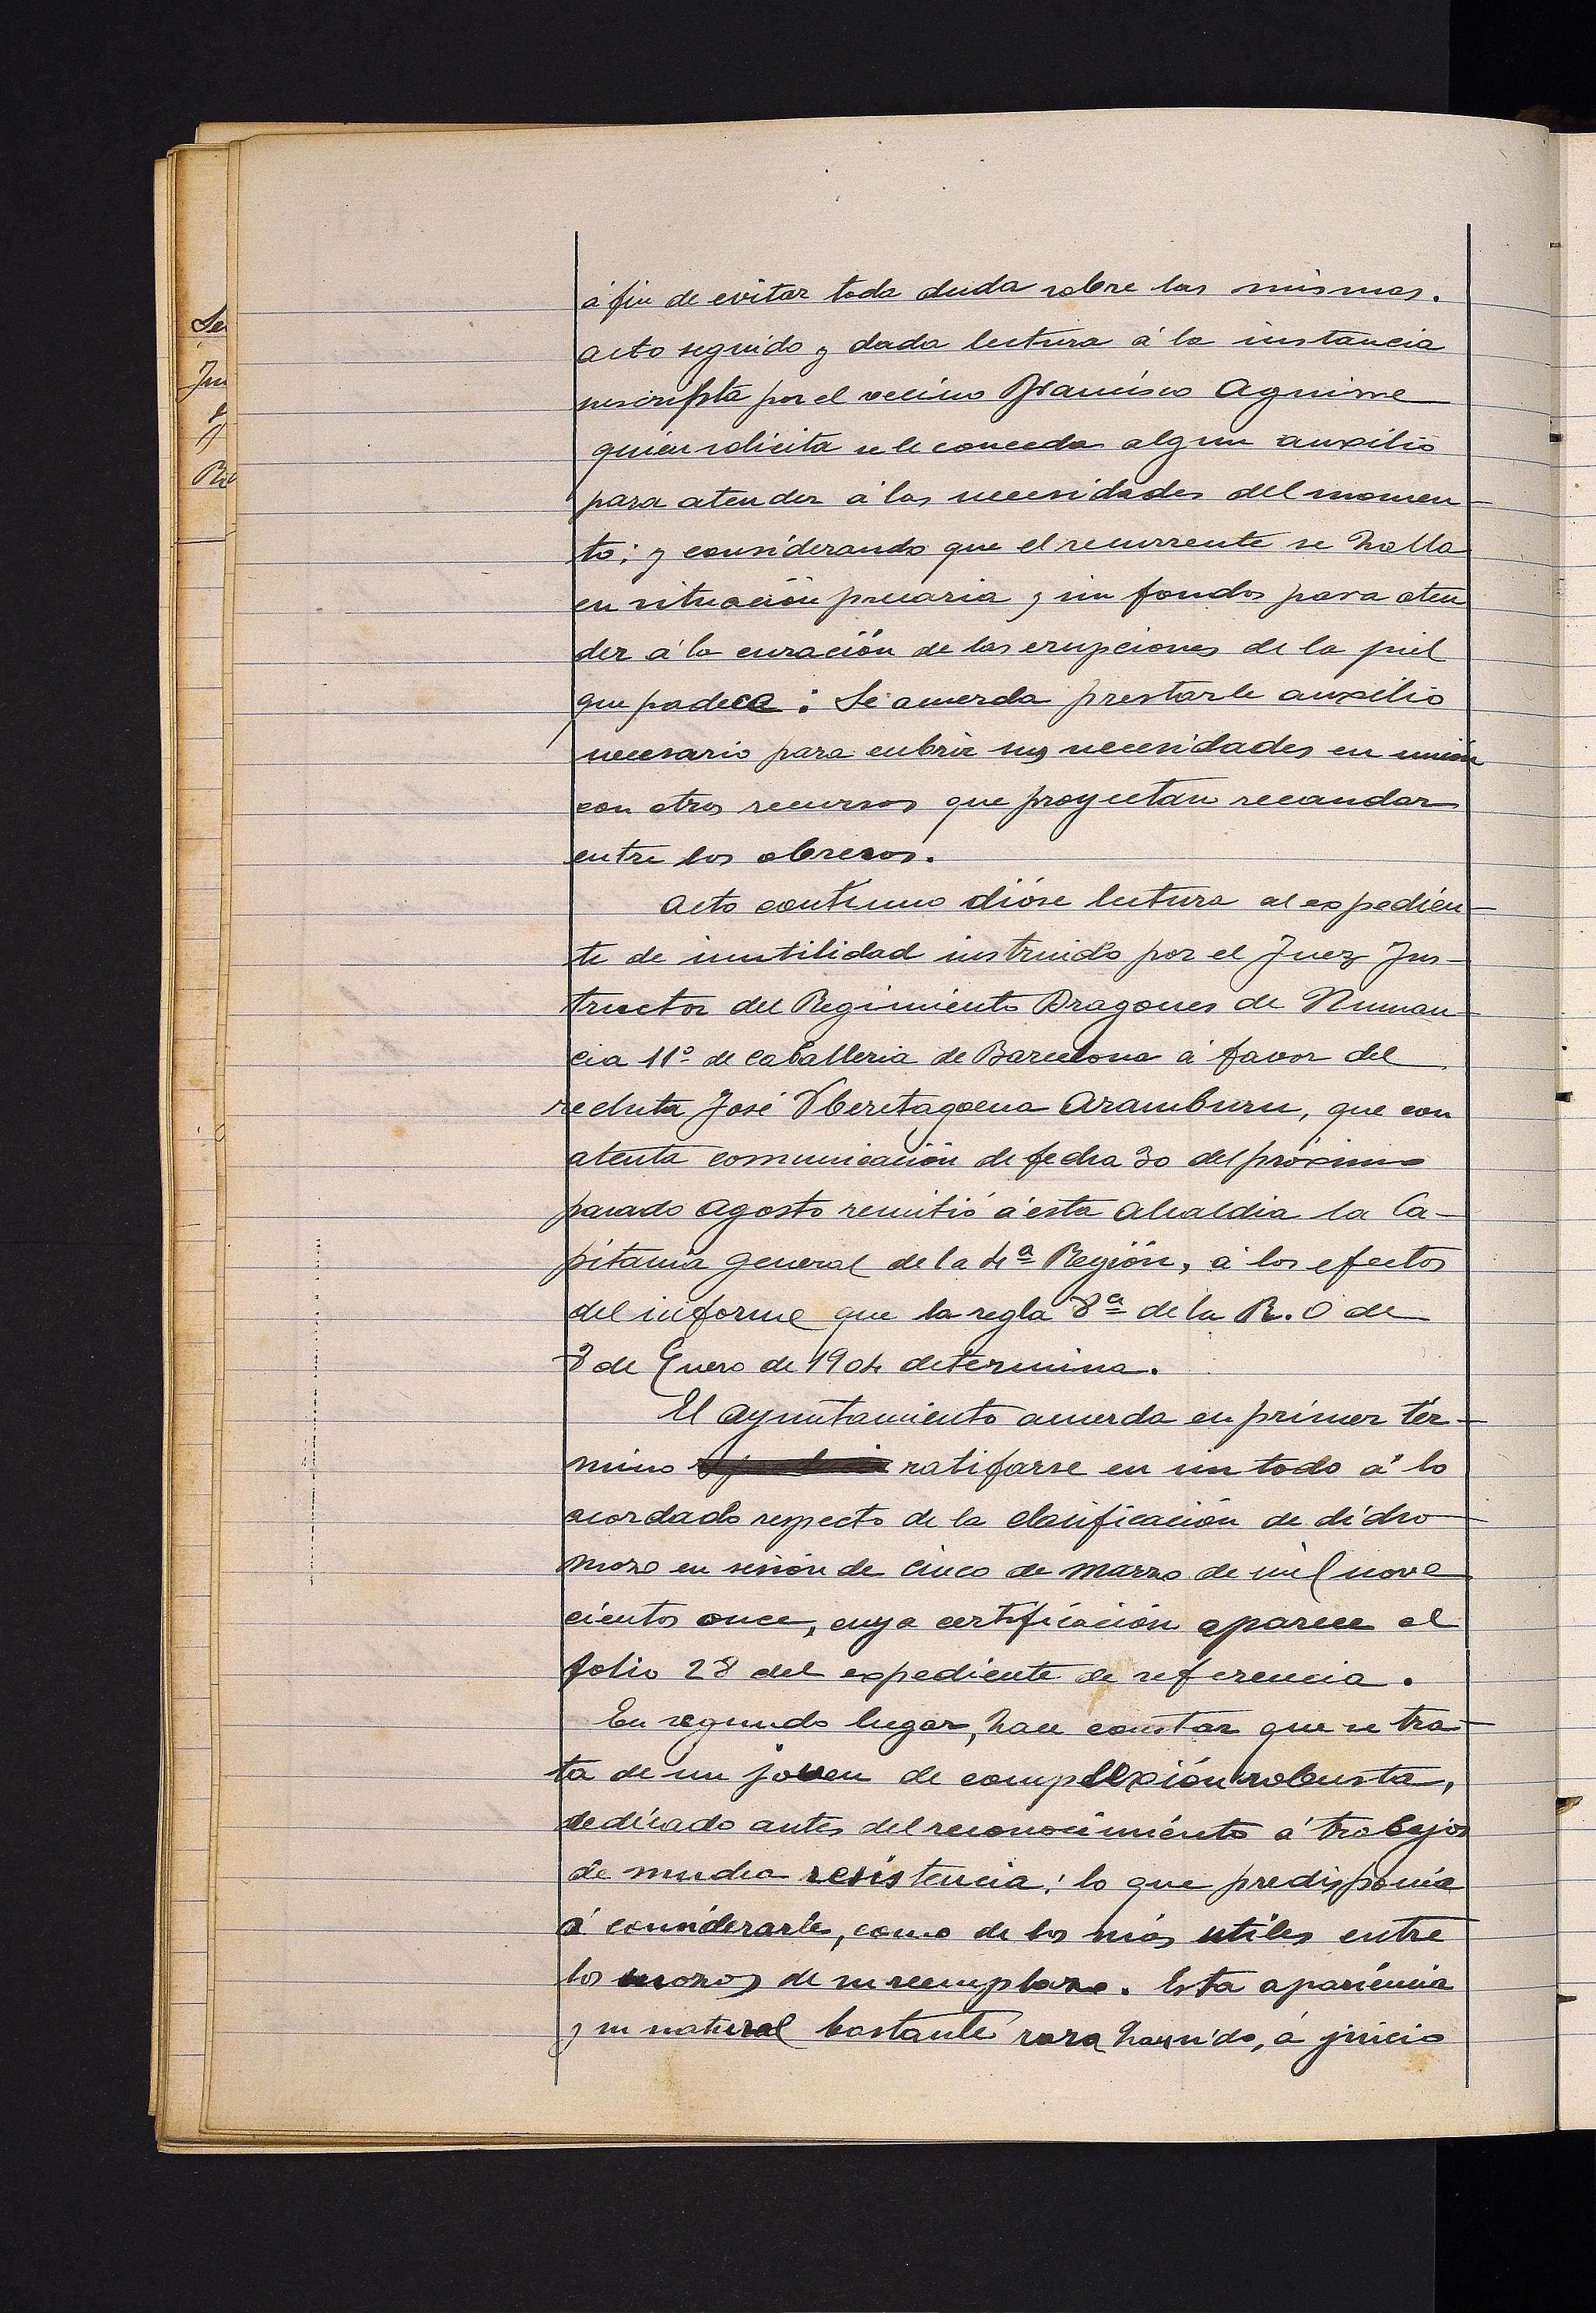 á fin de evitar toda duda sobre las mismas.
acto seguido y dada lectura á la instancia
suscripta por el vecino Francisco Aguirre
quien solicita se le conceda algun auxilio
para atender á las necesidades del momen-
to; y considerando que el recurrente se halla
en situación precaria y sin fondos para aten
der á la curación de las erupciones de la piel
que padece: Se acuerda prestarle auxilio
necesario para cubrir sus necesidades en unión
con otros recursos que proyectan recaudar
entre los obreros.
Acto contínuo dióse lectura al expedien-
te de inutilidad instruido por el Juez Ins-
tructor del Regimiento Dragones de Numan-
cia 11º de Caballeria de Barcelona á favor del
recluta José Yberetagoena Aramburu, que con
atenta comunicación de fecha 30 del próximo
pasado Agosto remitió á esta Alcaldia la Ca-
pitania General de la 4ª Región, á los efectos
del informe que la regla 8ª de la R. O de
8 de Enero de 1904 determina.
El Ayuntamiento acuerda en primer tér-
mino ratifarse en un todo á lo
acordado respecto de la clasificación de dicho
mozo en sesión de cinco de marzo de mil nove
cientos once, cuya certificación aparece al
folio 28 del expediente de referencia.
En segundo lugar, hace constar que se tra-
ta de un joven de complexión robusta,
dedicado antes del reconocimiento á trabajos
de mucha resistencia; lo que predisponía
á considerarle, como de los más utiles entre
los mozos de su reemplazo. Esta apariencia
y su natural bastante rara han sido, á juicio